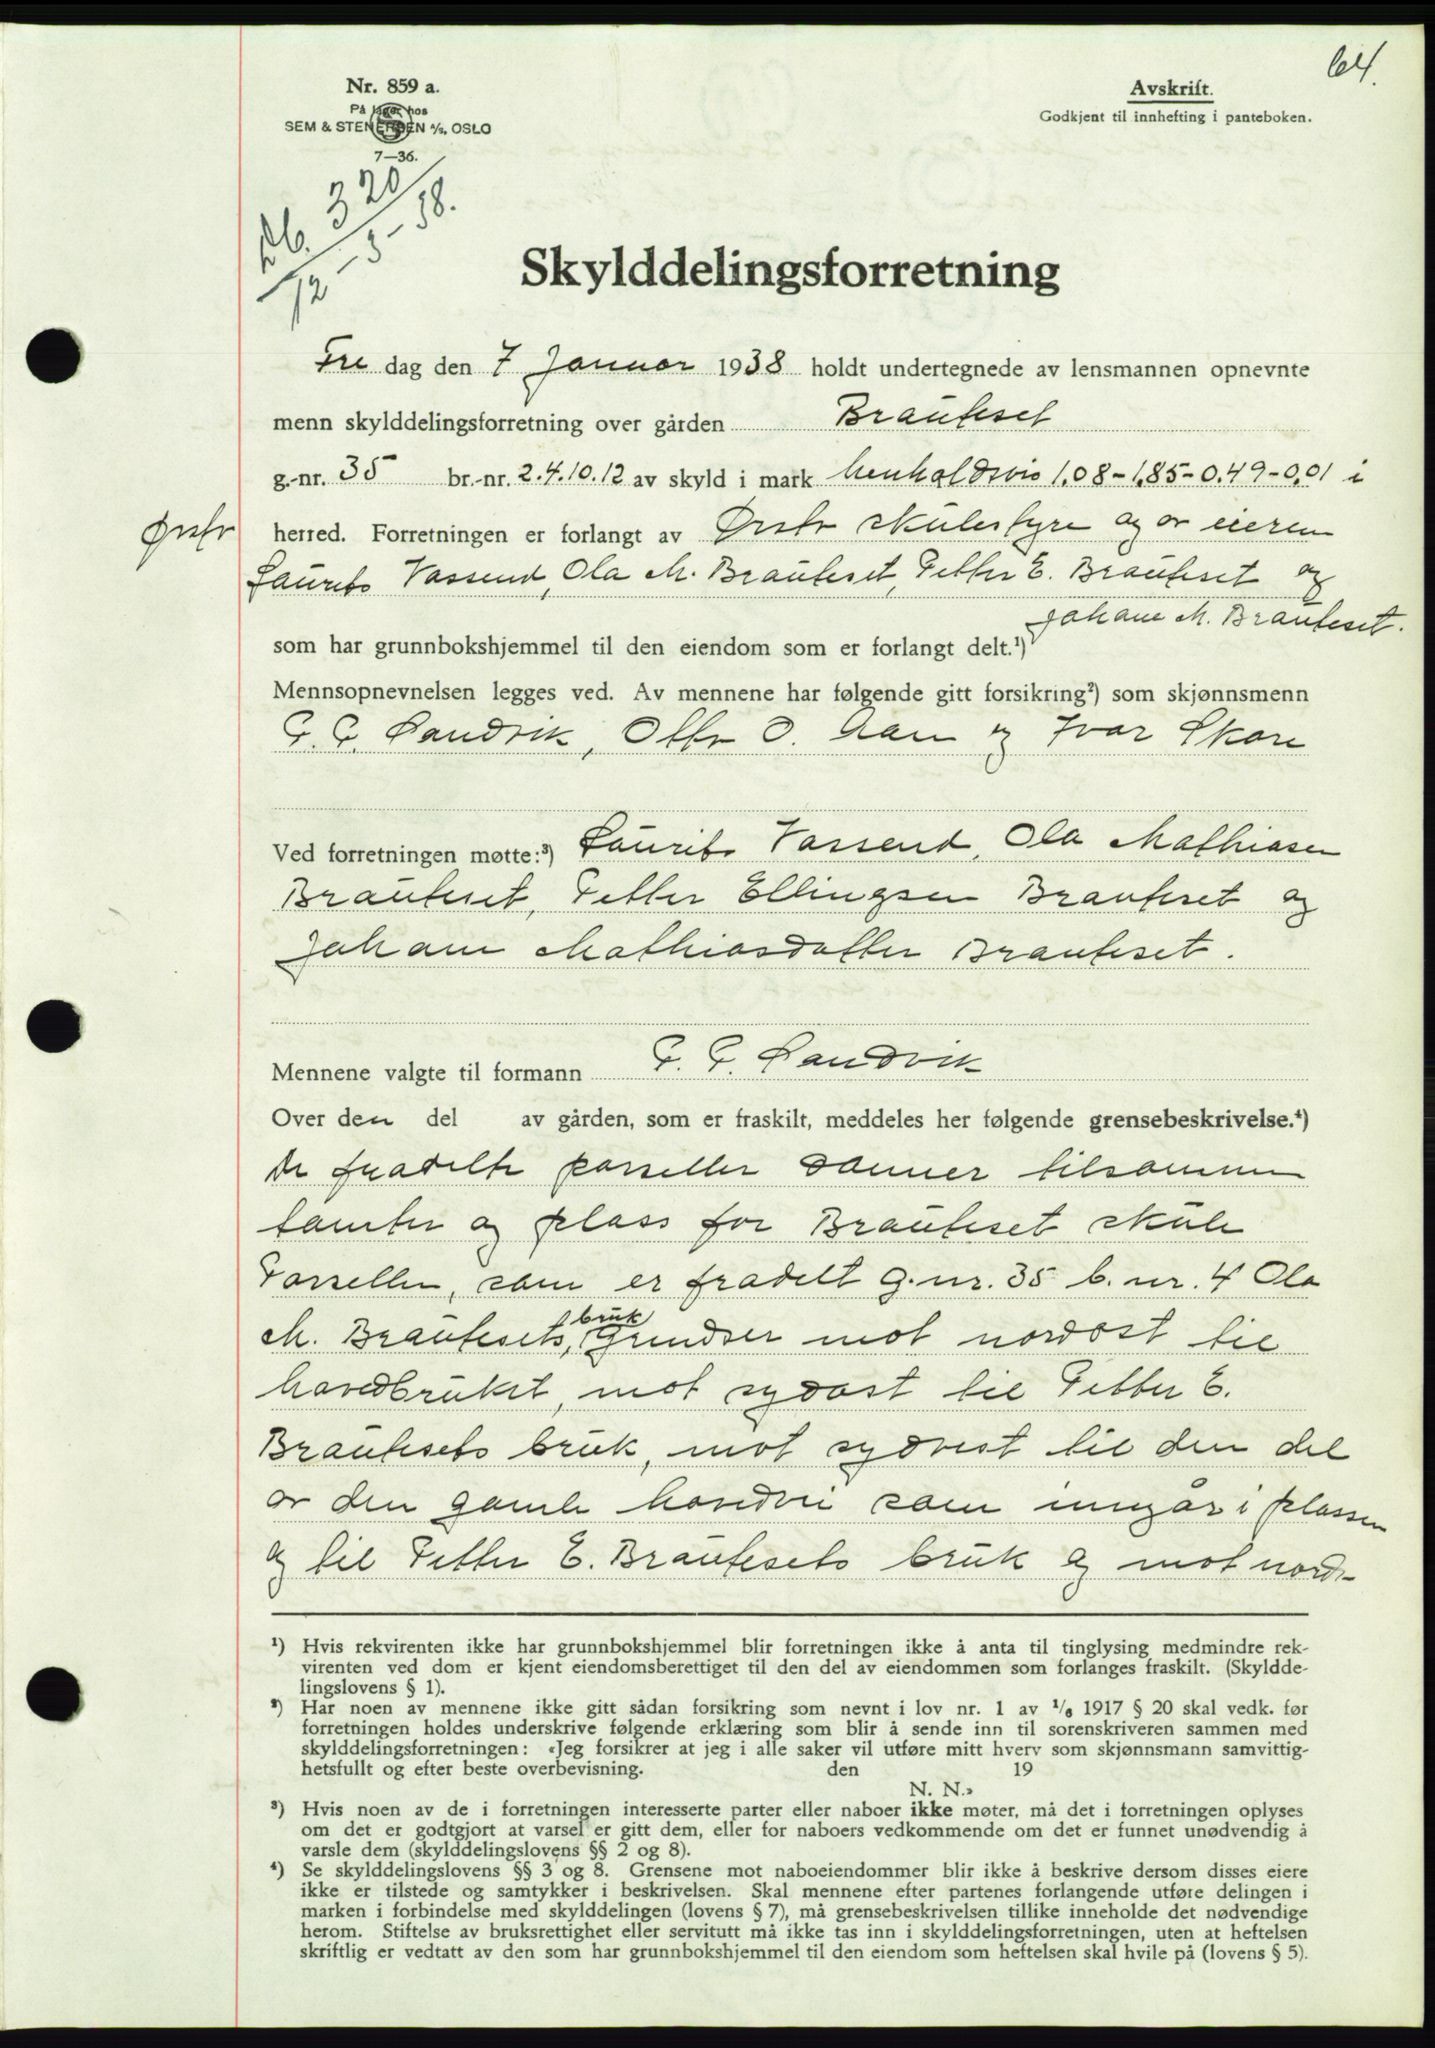 64.
Nr. 859 a.
På lager hos
SEM & STENERSEN A/S, OSLO
7—36.
Avskrift.
Godkjent til innhefting i panteboken.
Db. 320
12-3-38.
Skylddelingsforretning
Fre dag den 7 Januar 1938 holdt undertegnede av lensmannen opnevnte
menn skylddelingsforretning over gården Brauteset
g.-nr. 35 br.-nr. 2.4.10.12 av skyld i mark henholdsvis 1,08-1,85-0,49-0,01 i
Ørsta herred. Forretningen er forlangt av Ørsta skulestyre og av eierene
Laurits Vassend, Ola M. Brauteset, Petter E. Brauteset og
Johane M. Brauteset.
som har grunnbokshjemmel til den eiendom som er forlangt delt.¹)
Mennsopnevnelsen legges ved. Av mennene har følgende gitt forsikring²) som skjønnsmenn
P. P. Sandvik, Otto O. Aam og Ivar Skare
Ved forretningen møtte:³) Laurits Vassend, Ola Mathiasen
Brauteset, Petter Ellingsen Brauteset og
Johane Mathiasdatter Brauteset.
Mennene valgte til formann P. P. Sandvik
Over den del av gården, som er fraskilt, meddeles her følgende grensebeskrivelse.⁴)
De fradelte parseller danner tilsammen
tomter og plass for Brauteset skule
Parsellen, som er fradelt g.nr. 35 b.nr. 4 Ola
M. Brautesets bruk, Grendser mot nordost til
hovedbruket, mot sydost til Petter E.
Brautesets bruk, mot sydvest til den del
av den gamle hovedvei som inngår i plassen
og til Petter E. Brautesets bruk og mot nord-
¹) Hvis rekvirenten ikke har grunnbokshjemmel blir forretningen ikke å anta til tinglysing medmindre rek-
virenten ved dom er kjent eiendomsberettiget til den del av eiendommen som forlanges fraskilt. (Skyldde-
lingslovens § 1).
²) Har noen av mennene ikke gitt sådan forsikring som nevnt i lov nr. 1 av ¹/₆ 1917 § 20 skal vedk. før
forretningen holdes underskrive følgende erklæring som blir å sende inn til sorenskriveren sammen med
skylddelingsforretningen: «Jeg forsikrer at jeg i alle saker vil utføre mitt hverv som skjønnsmann samvittig-
hetsfullt og efter beste overbevisning. den 19
N. N.»
³) Hvis noen av de i forretningen interesserte parter eller naboer ikke møter, må det i forretningen oplyses
om det er godtgjort at varsel er gitt dem, eller for naboers vedkommende om det er funnet unødvendig å
varsle dem (skylddelingslovens §§ 2 og 8).
⁴) Se skylddelingslovens §§ 3 og 8. Grensene mot naboeiendommer blir ikke å beskrive dersom disses eiere
ikke er tilstede og samtykker i beskrivelsen. Skal mennene efter partenes forlangende utføre delingen i
marken i forbindelse med skylddelingen (lovens § 7), må grensebeskrivelsen tillike inneholde det nødvendige
herom. Stiftelse av bruksrettighet eller servitutt må ikke tas inn i skylddelingsforretningen, uten at heftelsen
skriftlig er vedtatt av den som har grunnbokshjemmel til den eiendom som heftelsen skal hvile på (lovens § 5).